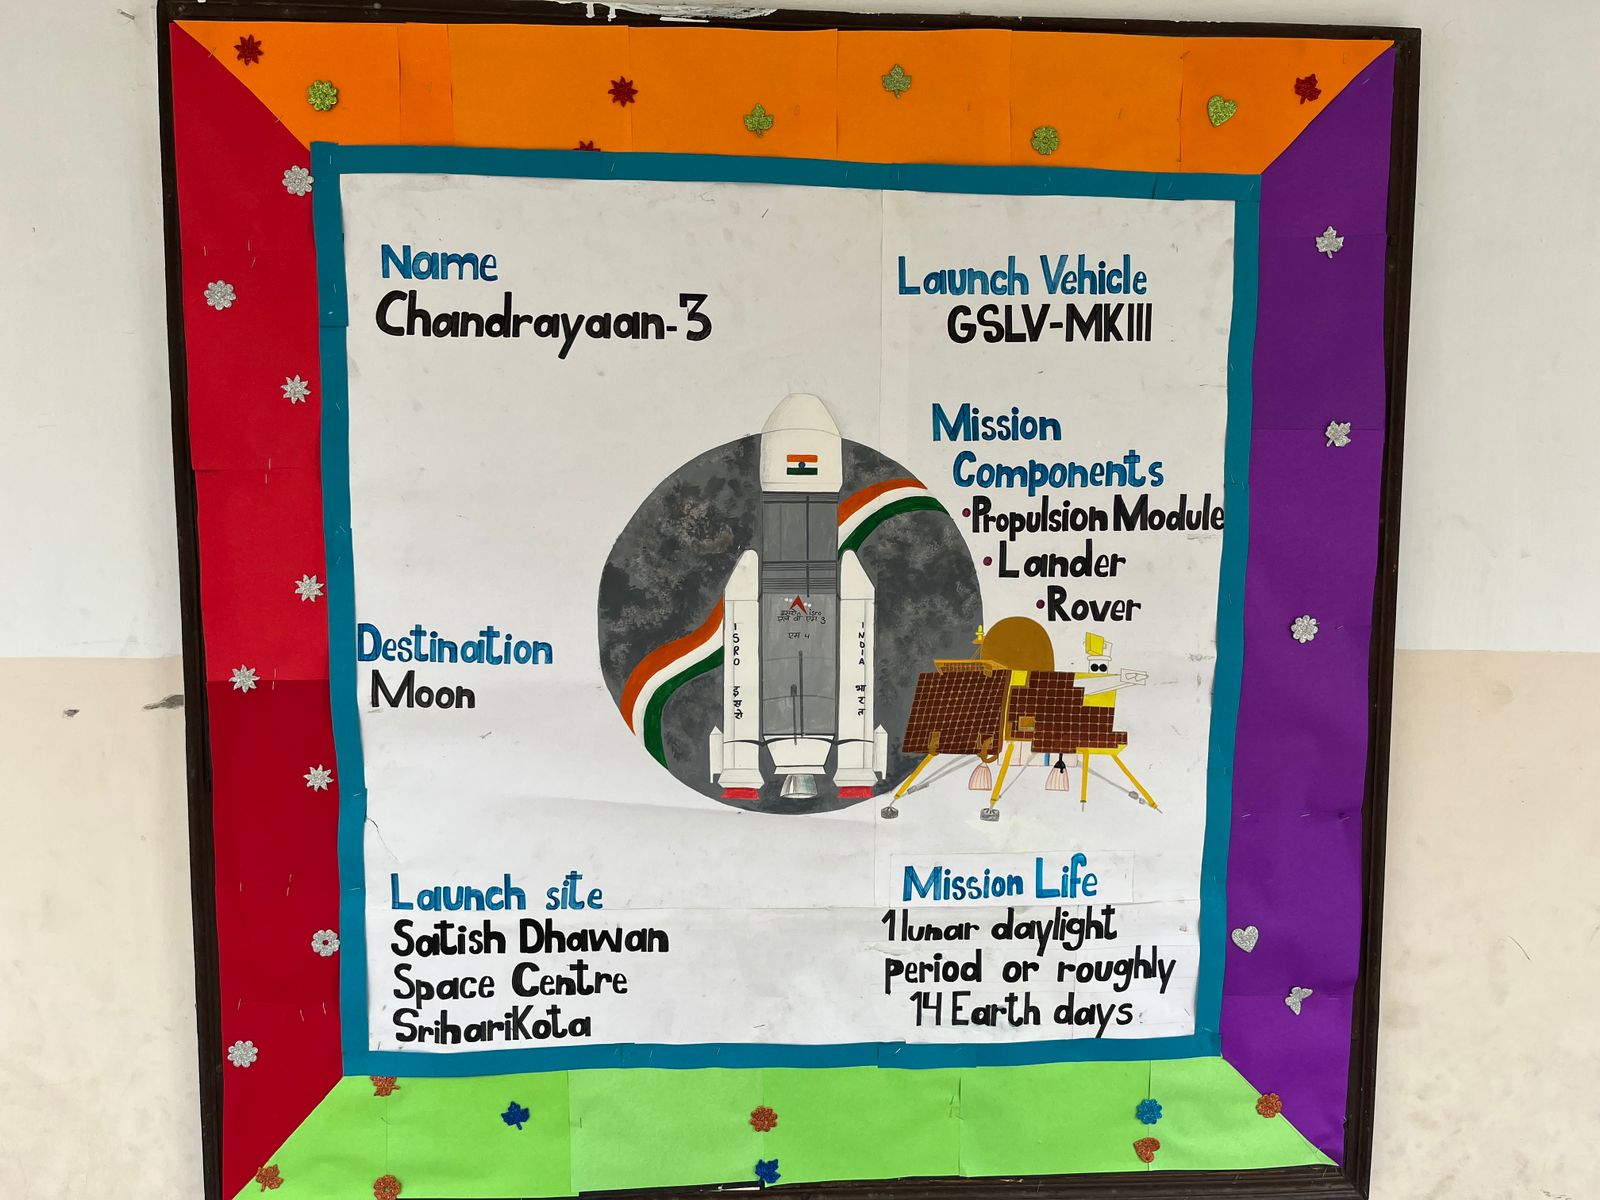 Name
Chandrayaan-3
Launch Vehicle
GSLV-MKIII
Mission
Components
•Propulsion Module
•Lander
•Rover
Destination
Moon
isro
एल वी एम 3
एम 4
ISRO
इसरो
INDIA
भारत
Launch site
Satish Dhawan
Space Centre
SrihariKota
Mission Life
1 lunar daylight
period or roughly
14 Earth days